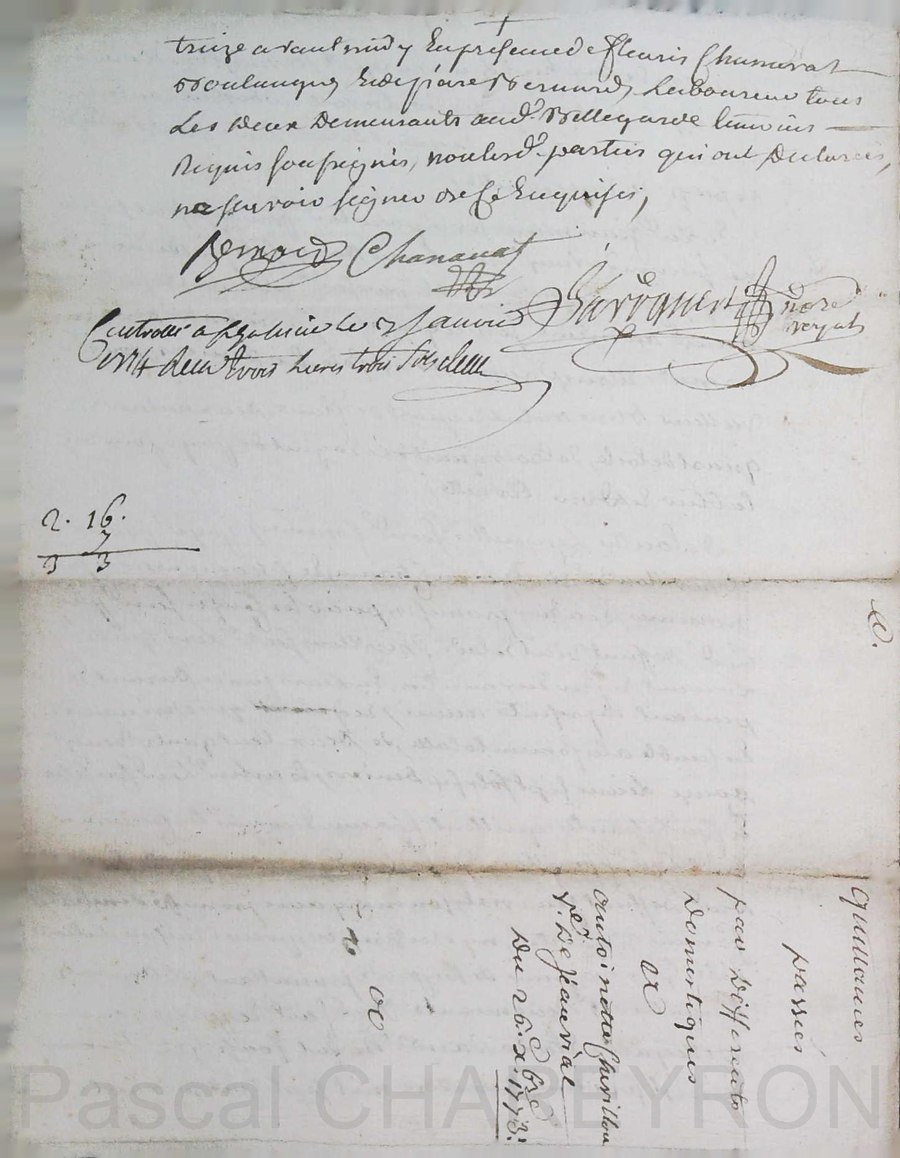 treize avant midy En presence de fleuris Chanavat
Boulanger, Et de piere Bernard, Laboureur tous
Les deux Demeurants aud.^t Bellegarde temoins
Requis soussignés, non lesd. parties qui ont Declarées,
ne sçavoir signer de ce Enquises,
Bernard Chanavat
nore
royal
Controllé a le 7 Janvier
1774 Reçu trois Livres trois sols
2. 16.
7
3 3
Quittances
passées
par Differents
Domestiques
a
antoinette
v.^e De jean vial
Du 26. x.bre 1773.
Pascal CHAPEYRON